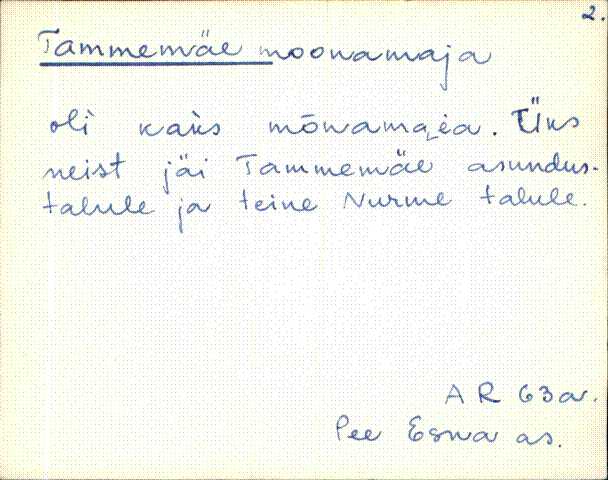 2.
Tammemäe moonamaja
oli kaks mõnamaea. Üks
neist jäi Tammemäe asundus-
talule ja teine Nurme talule.
AR 63a.
Pee Esna as.